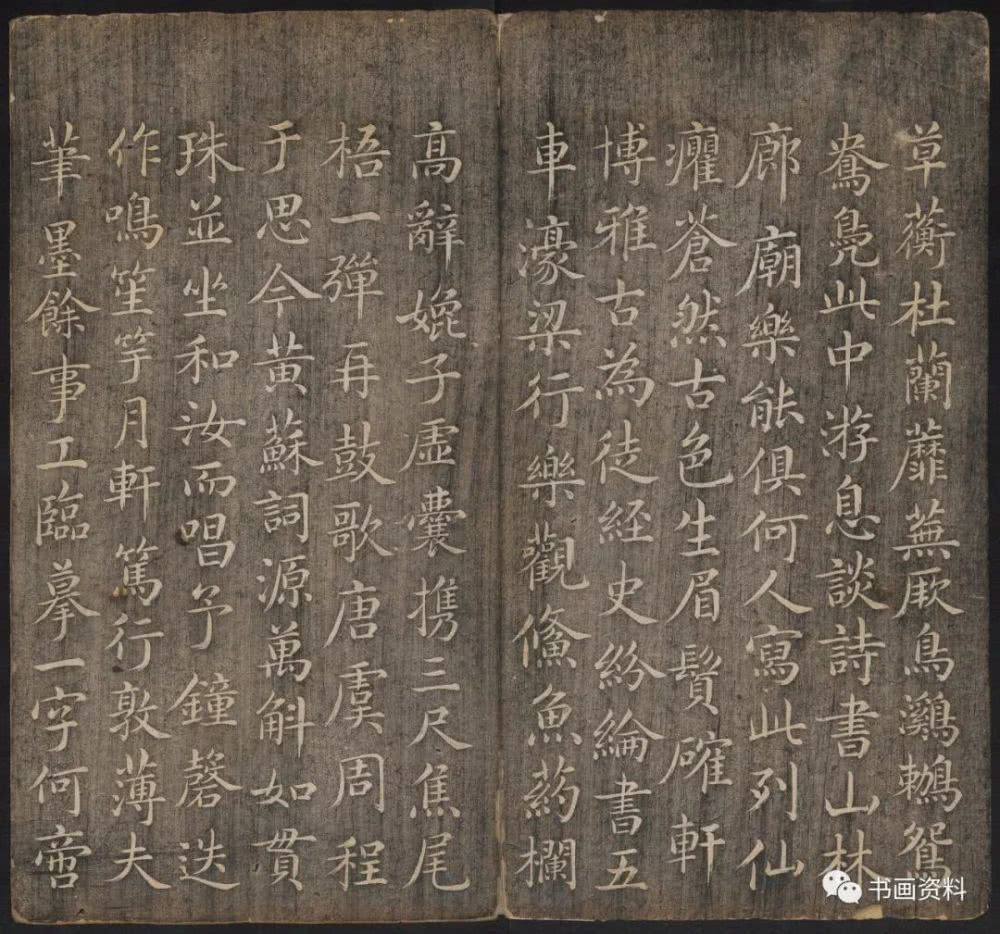 草蘅杜蘭蘼蕪厥鳥鸂鶒鴛
鴦鳧此中游息談詩書山林
廊廟樂能俱何人寫此列仙
癯蒼然古色生眉鬢確軒
博雅古為徒経史紛綸書五
車濠梁行樂觀鯈魚葯欄
高辭媲子虛囊携三尺焦尾
梧一彈再鼓歌唐虞周程
于思今黃蘇詞源萬斛如貫
珠並坐和汝而唱予鐘磬迭
作鳴笙竽月軒篤行敦薄夫
筆墨餘事工臨摹一字何啻
书画资料